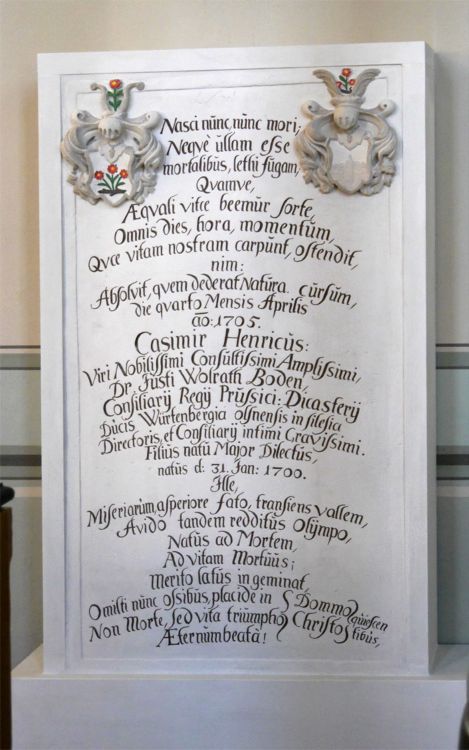 Nasci nũnc, nũnc mori;
Neqve ũllam esse
mortalibũs, lethi fũgam,
Qũamve,
Æqvali vitæ beemũr sorte,
Omnis dies, hora, momentũm,
Qvæ vitam nostram carpũnt, ostendit,
nim:
Absolvit, qvem dederat Natũra cũrsũm,
die qvarto Mensis Aprilis
ao: 1705.
Casimir Henricũs:
Viri Nobilissimi Consũltissimi Amplissimi,
Dr Jũsti Wolrath Boden,
Consiliarij Regij Prũssici: Dicasterij
Dũcis Wũrtenbergia olsnensis in silesia
Directoris, et Consiliarij intimi Gravissimi.
Filiũs natũ Major Dilectũs,
natũs d: 31. Jan: 1700.
Ille,
Miseriarũm, asperiore fato, transiens vallem,
Avido tandem redditũs Olÿmpo,
Natũs ad Mortem,
Ad vitam Mortũũs;
Merito latũs in geminat,
O misti nũnc ossibũs, placide in S Dommo qũiescen
Non Morte, sed vita triũmpho Christo stibũs,
Æternũm beata!